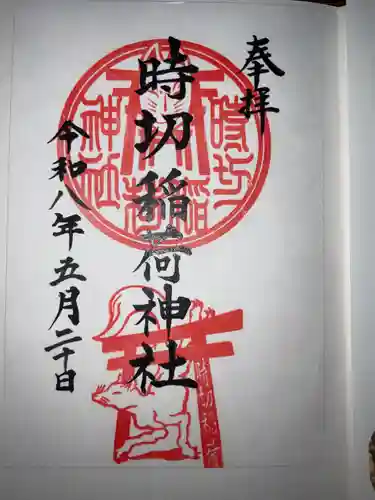 奉拝
時切稲荷神社
令和八年五月二十日
時切稲荷神社
時切稲荷